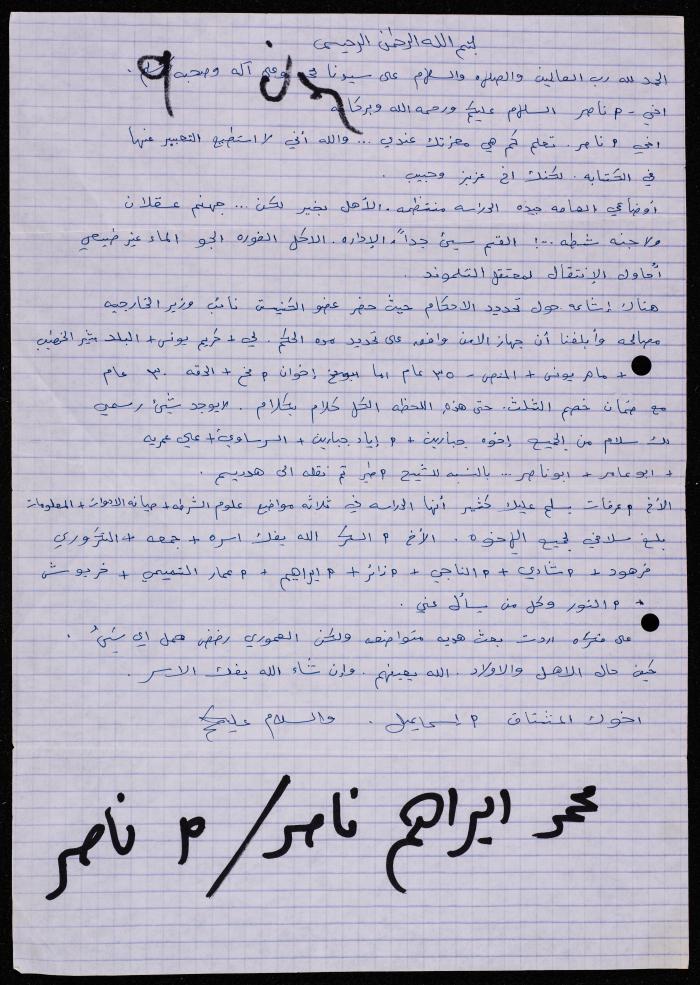 بسم الله الرحمن الرحيم
الحمد لله رب العالمين والصلاه والسلام على سيدنا وعلى آله وصحبه
اخي - م ناصر السلام عليكم ورحمه الله وبركاته
اخي م ناصر. تعلم كم هي معزتك عندي ... والله أني لا استطيع التعبير عنها
في الكتابه. لكنك اخ عزيز وحبيب.
أوضاعي العامه جيده الدراسه منتظمه. الأهل بخير لكن ... جهنم عسقلان
ولا جنه شطه ..! القسم سيئ جداً، الإداره. الاكل الفوره الجو الماء غير طبيعي
أحاول الإنتقال لمعتقل التلموند.
هناك إشاعه حول تحديد الاحكام حيث حضر عضو الكنيست نائب وزير الخارجيه
مصالحه وأبلغنا أن جهاز الامن وافق على تحديد مده الحكم. لي + كريم يونس + البلد بشير الخطيب
+ ماهر يونس + - ٣٥ عام اما إخوان م مخ + الحقه ٣٠ عام
مع ضمان خصم الثلث. حتى هذه اللحظه الكل كلام بكلام. لا يوجد شيئ رسمي
لك سلام من الجميع إخوه جبارين + م إياد جبارين + السرساوي + علي عمريه
+ ابو عامر + ابو ناصر ... بالنسبه للشيخ م تم نقله الى هداريم.
الأخ م عرفات يسلم عليك كثير أنها الدراسه في ثلاثه مواضيع علوم الشرطه + صيانه الادوات + المعلومات
بلغ سلامي لجميع الإخوه. الأخ م الله يفك اسره + جمعه + التكروري
فرهود + م شادي + م الناجي + م زائر + م ابراهيم + م عمار التميمي + خربوش
+ م النور وكل من يسأل عني.
على فكره اردت بعث هديه متواضعه ولكن العموري رفض حمل اي شيئ.
كيف حال الاهل والاولاد. الله يعينهم. وإن شاء الله يفك الاسر.
اخوك المشتاق م إسماعيل. والسلام عليكم
محمد ابراهيم ناصر / م ناصر